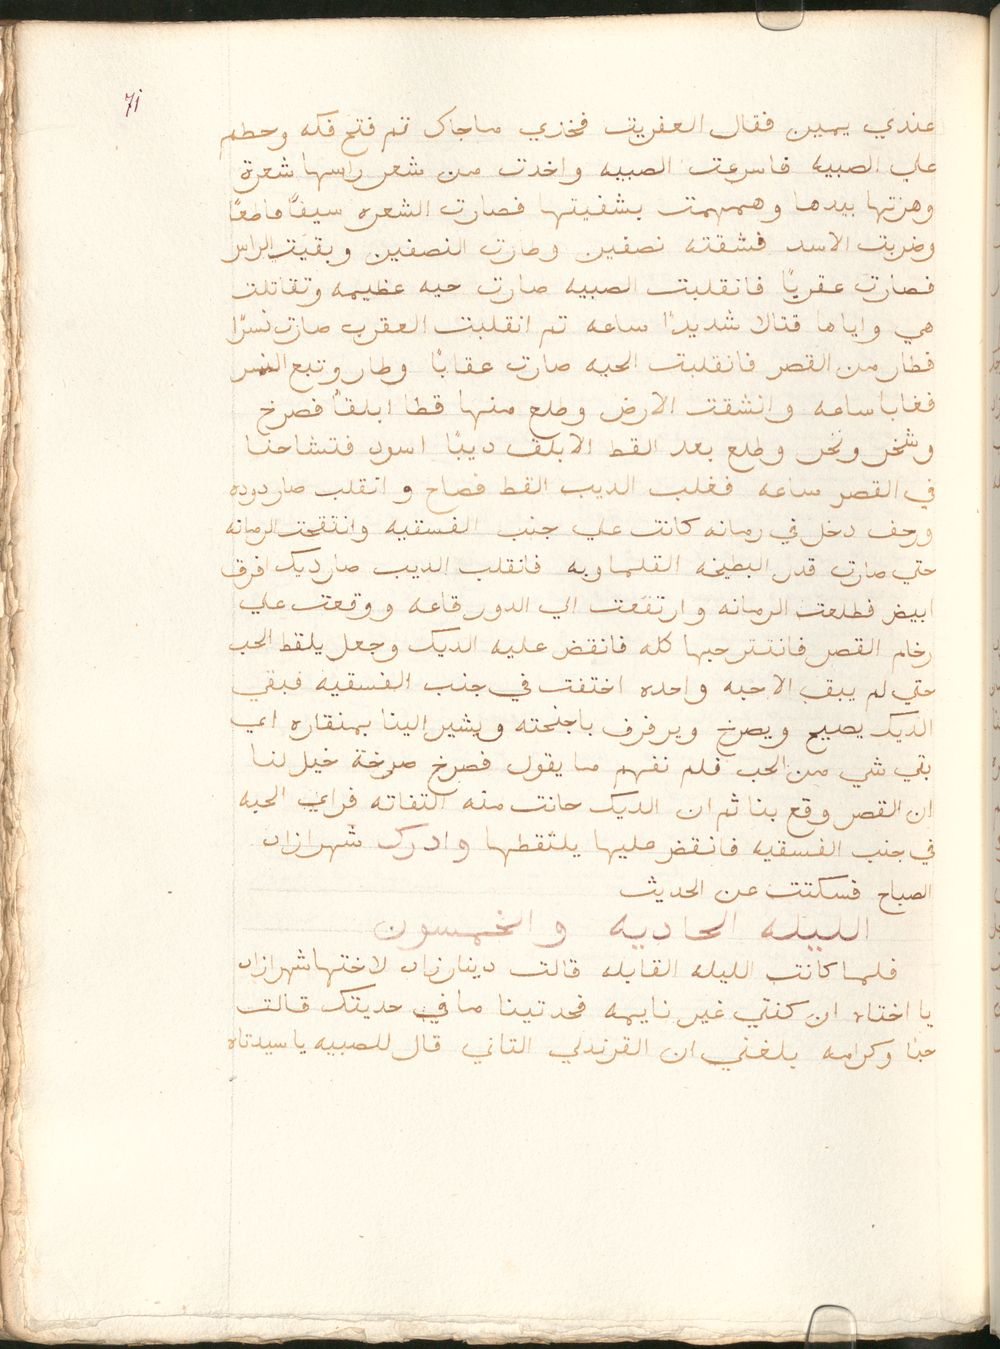 71
عندي يمين فقال العفريت فخذي ماجاك تم فتح فكه وحطم
علي الصبيه فاسرعت الصبيه واخدت من شعر راسها شعرة
وهزتها بيدها وهمهمت بشفيتها فصارت الشعره سيفًا قاطعًا
وضربت الاسد فشقته نصفين وطارت النصفين وبقيت الراس
فصارت عقربًا فانقلبت الصبيه صارت حيه عظيمه وتقاتلت
هي واياها قتالا شديدًا ساعه تم انقلبت العقرب صارت نسرًا
فطار من القصر فانقلبت الحيه صارت عقابًا وطار وتبع النسر
فغابا ساعه وانشقت الارض وطلع منها قطا ابلقًا فصرخ
وشخر ونخر وطلع بعد القط الابلق ديبًا اسود فتشاحنا
في القصر ساعه فغلب الديب القط فصاح وانقلب صار دوده
وزحف دخل في رمانه كانت علي جنب الفسقيه وانتفخت الرمانه
حتي صارت قدر البطيخه القلماويه فانقلب الديب صار ديك افرق
ابيض فطلعت الرمانه وارتفعت الي الدور قاعه ووقعت علي
رخام القصر فانتتر حبها كله فانقض عليه الديك وجعل يلقط الحب
حتي لم يبقي الاحبه واحده اختفت في جنب الفسقيه فبقي
الديك يصيح ويصرخ ويرفرف باجنحته ويشير الينا بمنقاره اي
بقي شي من الحب فلم نفهم ما يقول فصرخ صرخة خيل لنا
ان القصر وقع بنا ثم ان الديك حانت منه التفاته فراي الحبه
في جنب الفسقيه فانقض عليها يلتقطها وادرك شهرازاد
الصباح فسكتت عن الحديث
الليله الحاديه والخمسون
فلما كانت الليله القابله قالت دينارزاد لاختها شهرازاد
يا اختاه ان كنتي غير نايمه فحدتينا ما في حديتك قالت
حبًا وكرامه بلغني ان القرندلي التاني قال للصبيه يا سيدتاه